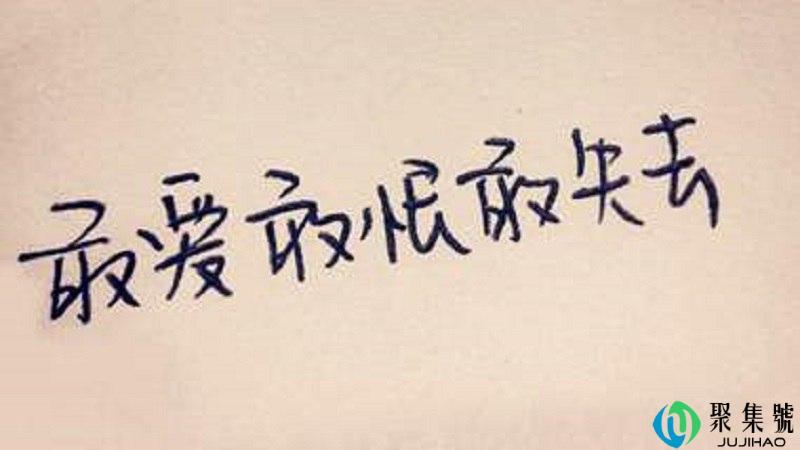 敢爱敢恨敢失去
聚集號
JUJIHAO